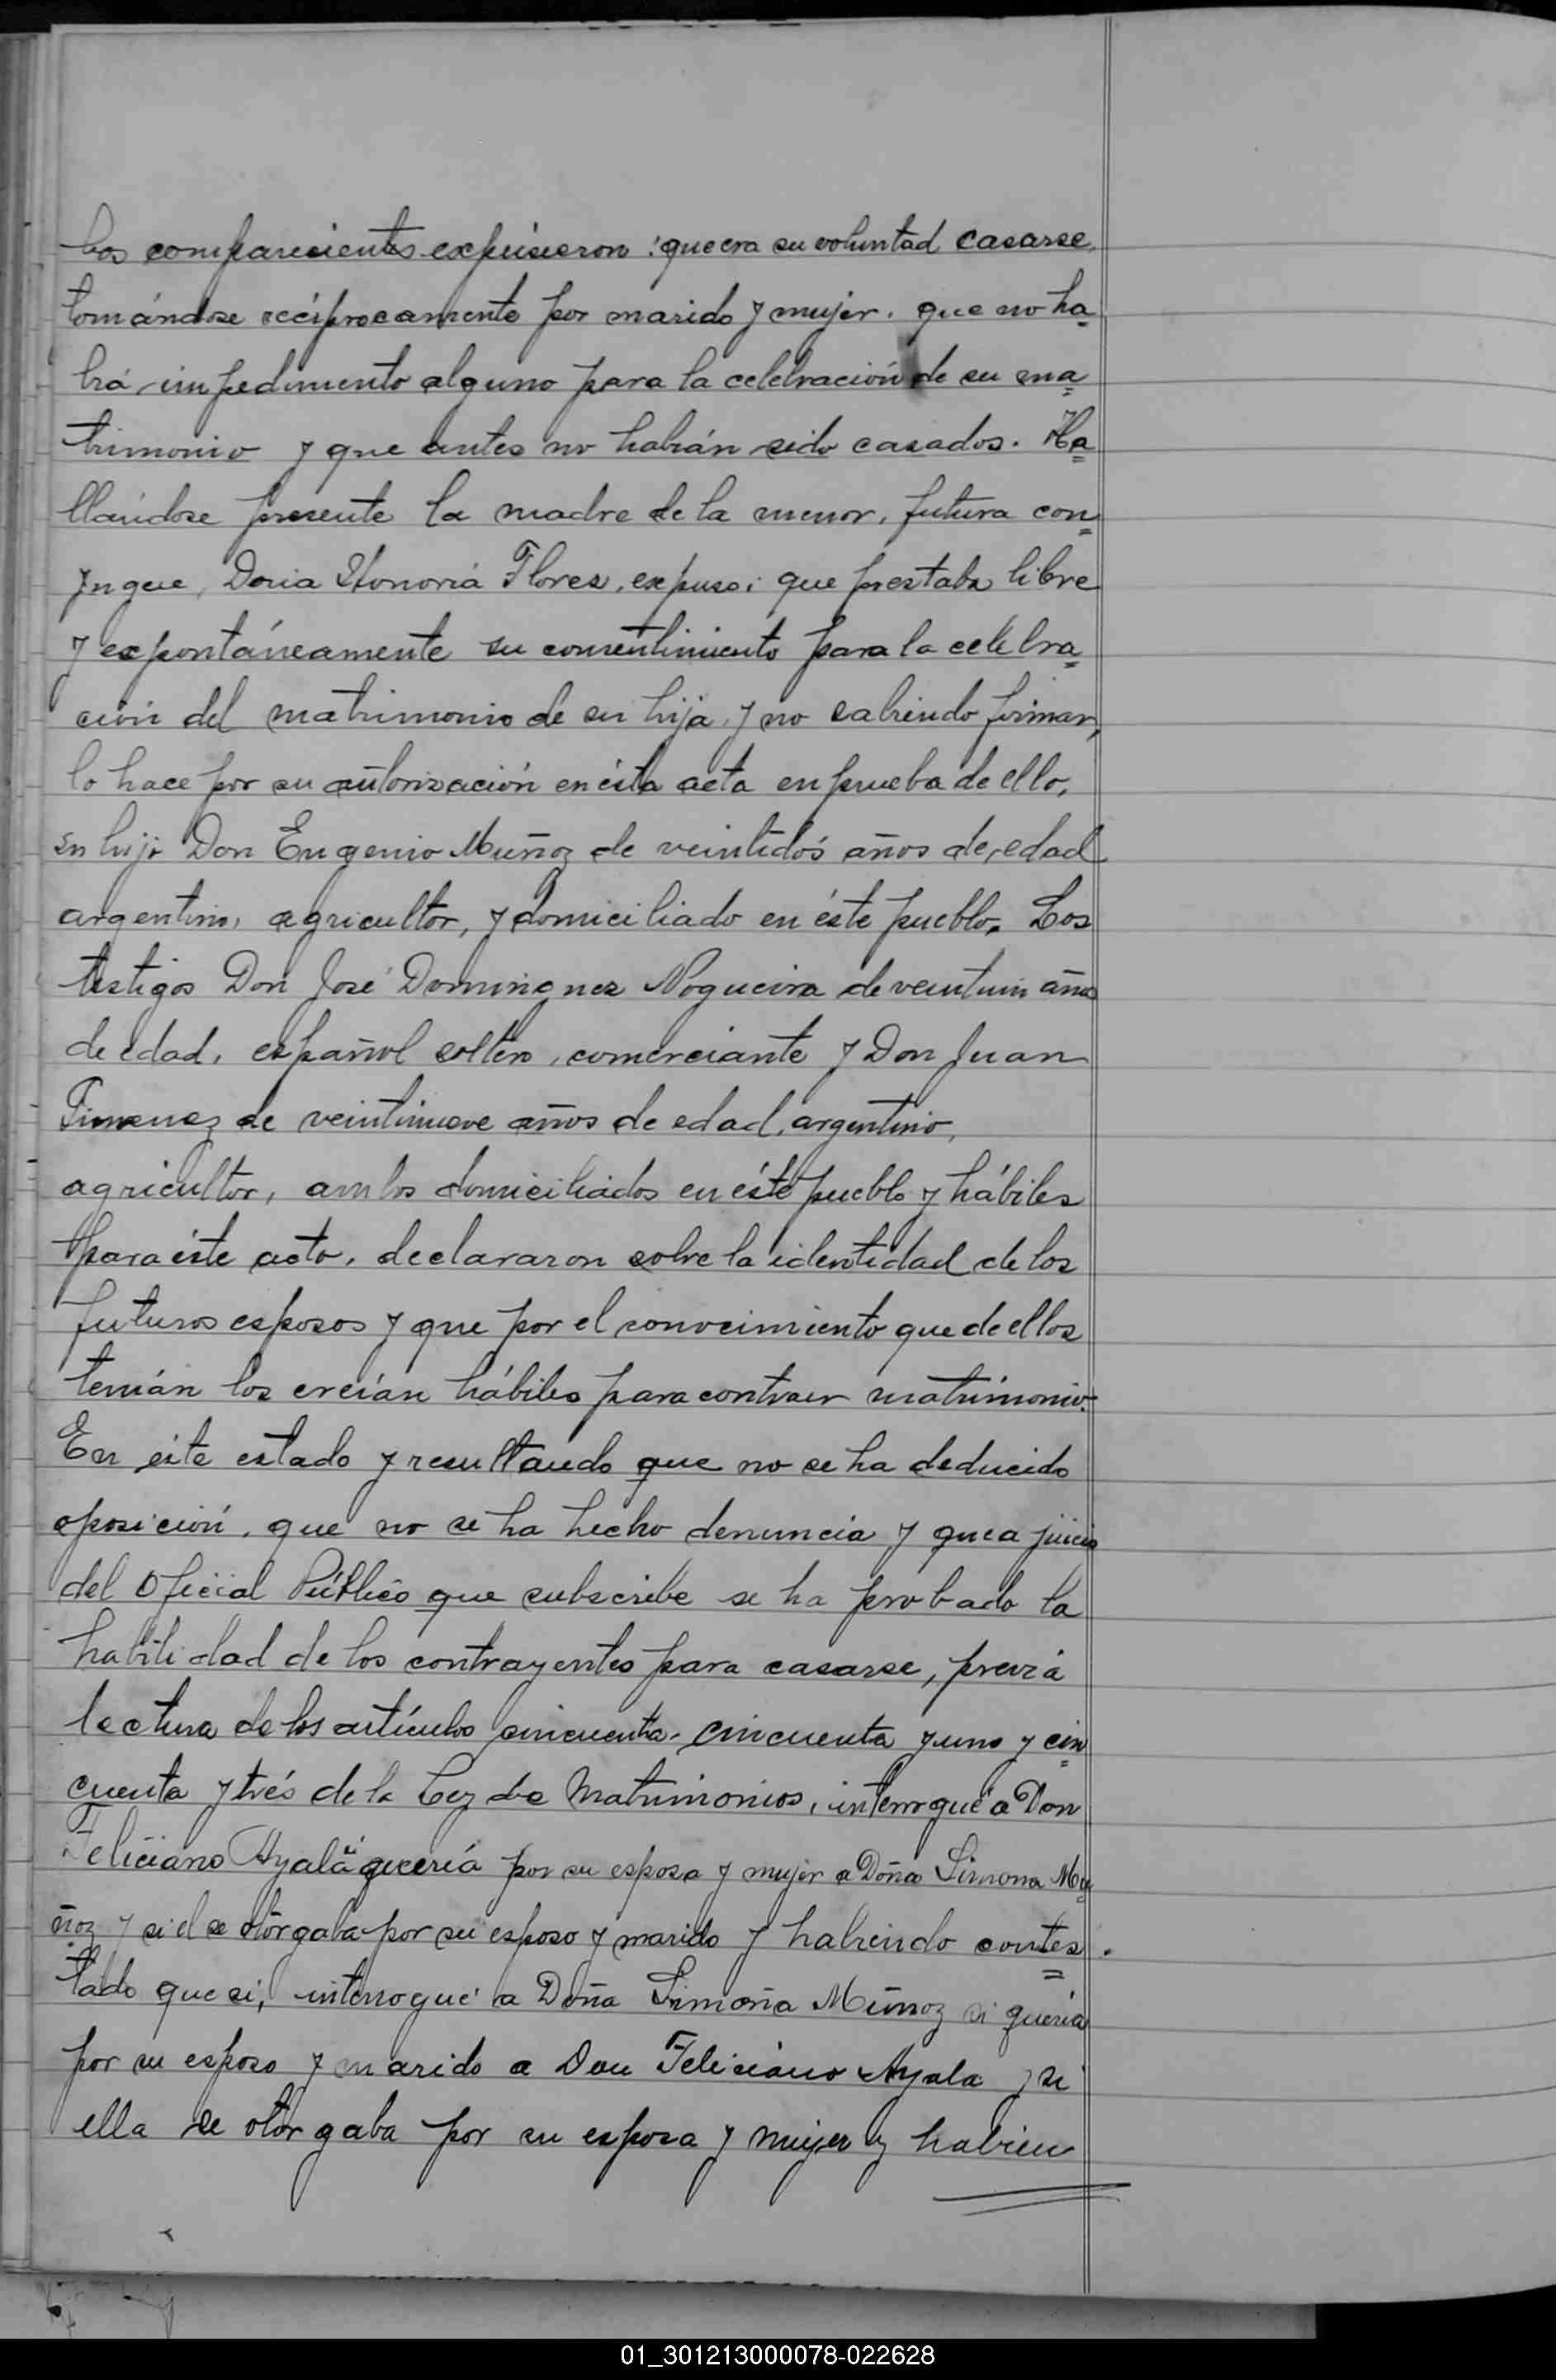 Los comparecientes expusieron: que era su voluntad casarse
tomándose recíprocamente por marido y mujer. que no ha
brá impedimento alguno para la celebración de su ma
trimonio y que antes no habián sido casados. Ha
llándose presente la madre de la menor, futura con
yugue, Doña Honoria Flores, expuso: que prestaba libre
y expontáneamente su consentimiento para la celebra
ción del matrimonio de su hija y no sabiendo firmar,
lo hace por su autorización en ésta acta en prueba de ello,
su hijo Don Eugenio Muñoz de veintidós años de edad
argentino, agricultor, y domiciliado en éste pueblo. Los
testigos Don José Dominguez Nogueira de veintiun años
de edad, español soltero, comerciante y Don Juan
Gimenez de veintinueve años de edad, argentino,
agricultor, ambos domiciliados en éste pueblo y hábiles
para éste acto, declararon sobre la identidad de los
futuros esposos y que por el conocimiento que de ellos
tenián los creían hábiles para contraer matrimonio.
En este estado y resultando que no se ha deducido
oposición, que no se ha hecho denuncia y que a juicio
del Oficial Público que subscribe se ha probado la
habilidad de los contrayentes para casarse, previa
lectura de los artículos cincuenta, cincuenta y uno y cin
cuenta y trés de la Ley de Matrimonios, interrogué a Don
Feliciano Ayala si quería por su esposa y mujer a Doña Simona Mu
ñoz y si el se otorgaba por su esposo y marido y habiendo contes
tado que si, interrogué a Doña Simona Muñoz si quería
por su esposo y marido a Don Feliciano Ayala y si
ella se otorgaba por su esposa y mujer y habien
01_301213000078-022628